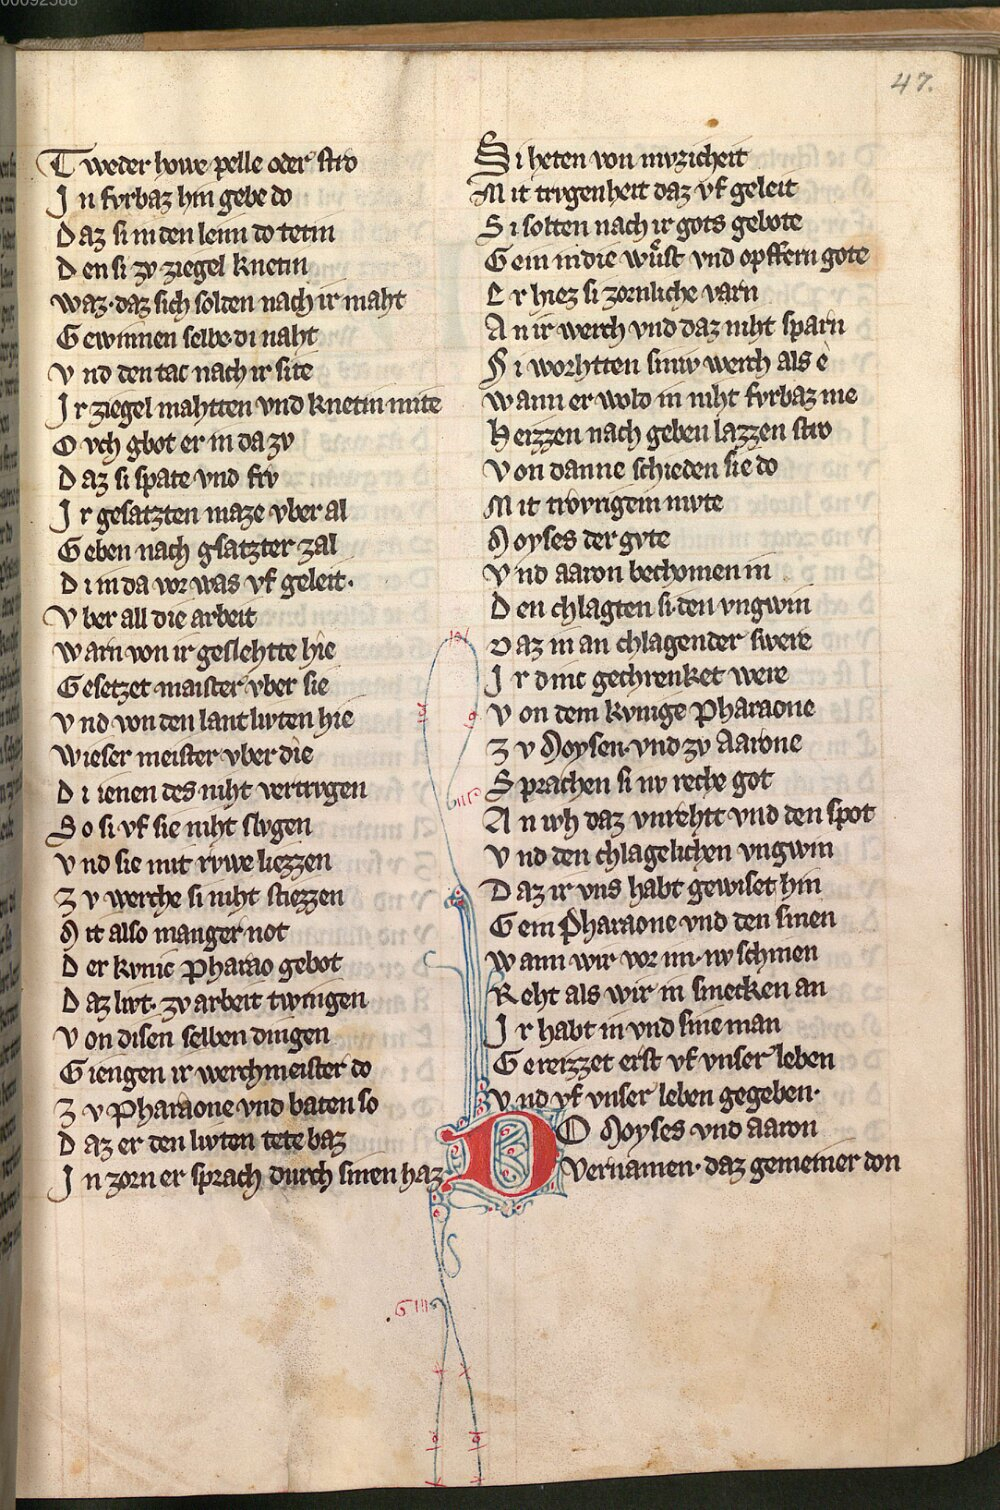 00092588
47.
T weder howe pelle oder stro
I n fvrbaz hin gebe do
D az si in den leim do tetin
D en si zv ziegel knetin
waz·daz sich solden nach ir maht
G ewinnen selbe·di naht
V nd den tac nach ir site
I r ziegel mahtten vnd knetin mite
O vch gbot er in da zv
D az si spate vnd frv
I r gesatzten maze vber al
G eben nach gsatzter zal
D i in da vor was vf geleit·
V ber all die arbeit
warn von ir geslehtte hie
G esetzet maister vber sie
V nd von den lant livten hie
wieser meister vber die
D i ienen des niht vertrvgen
S o si vf sie niht slvgen
V nd sie mit rvwe liezzen
Z v werche si niht stiezzen
M it also manger not
D er kvnic Pharao gebot
D az livt· zv arbeit twingen
V on disen selben dingen
G iengen ir werchmeister do
Z v Pharaone vnd baten so
D az er den livten tete baz
I n zorn er sprach durch sinen haz
S i heten von mvzicheit
M it trvgenheit daz vf geleit
S i solten nach ir gots gebote
G ein in die wuͤst vnd opffern gote
E r hiez si zornliche varn
A n ir werch vnd daz niht sparn
S i worhtten siniv werch als e
wann er wold in niht fvrbaz me
H eizzen nach geben lazzen stro
V on danne schieden sie do
M it trvrigem mvte
M oyses der gvte
V nd aaron bechomen in
D en chlagten si·den vngwin
D az in an chlagender swere
I r dinc gechrenket were
V on dem kvnige Pharaone
Z v Moysen·vnd zv Aarone
S prachen si nv reche got
A n ivh daz vnrehtt vnd den spot
V nd den chlagelichen vngwin
D az ir vns habt gewiset hin
G ein Pharaone vnd den sinen
wann wir vor im·nv schinen
R eht als wir in smecken an
I r habt in vnd sine man
G ereizzet erst vf vnser leben
V nd vf vnser leben gegeben·
D O Moyses vnd aaron
Vernamen· daz gemeiner don